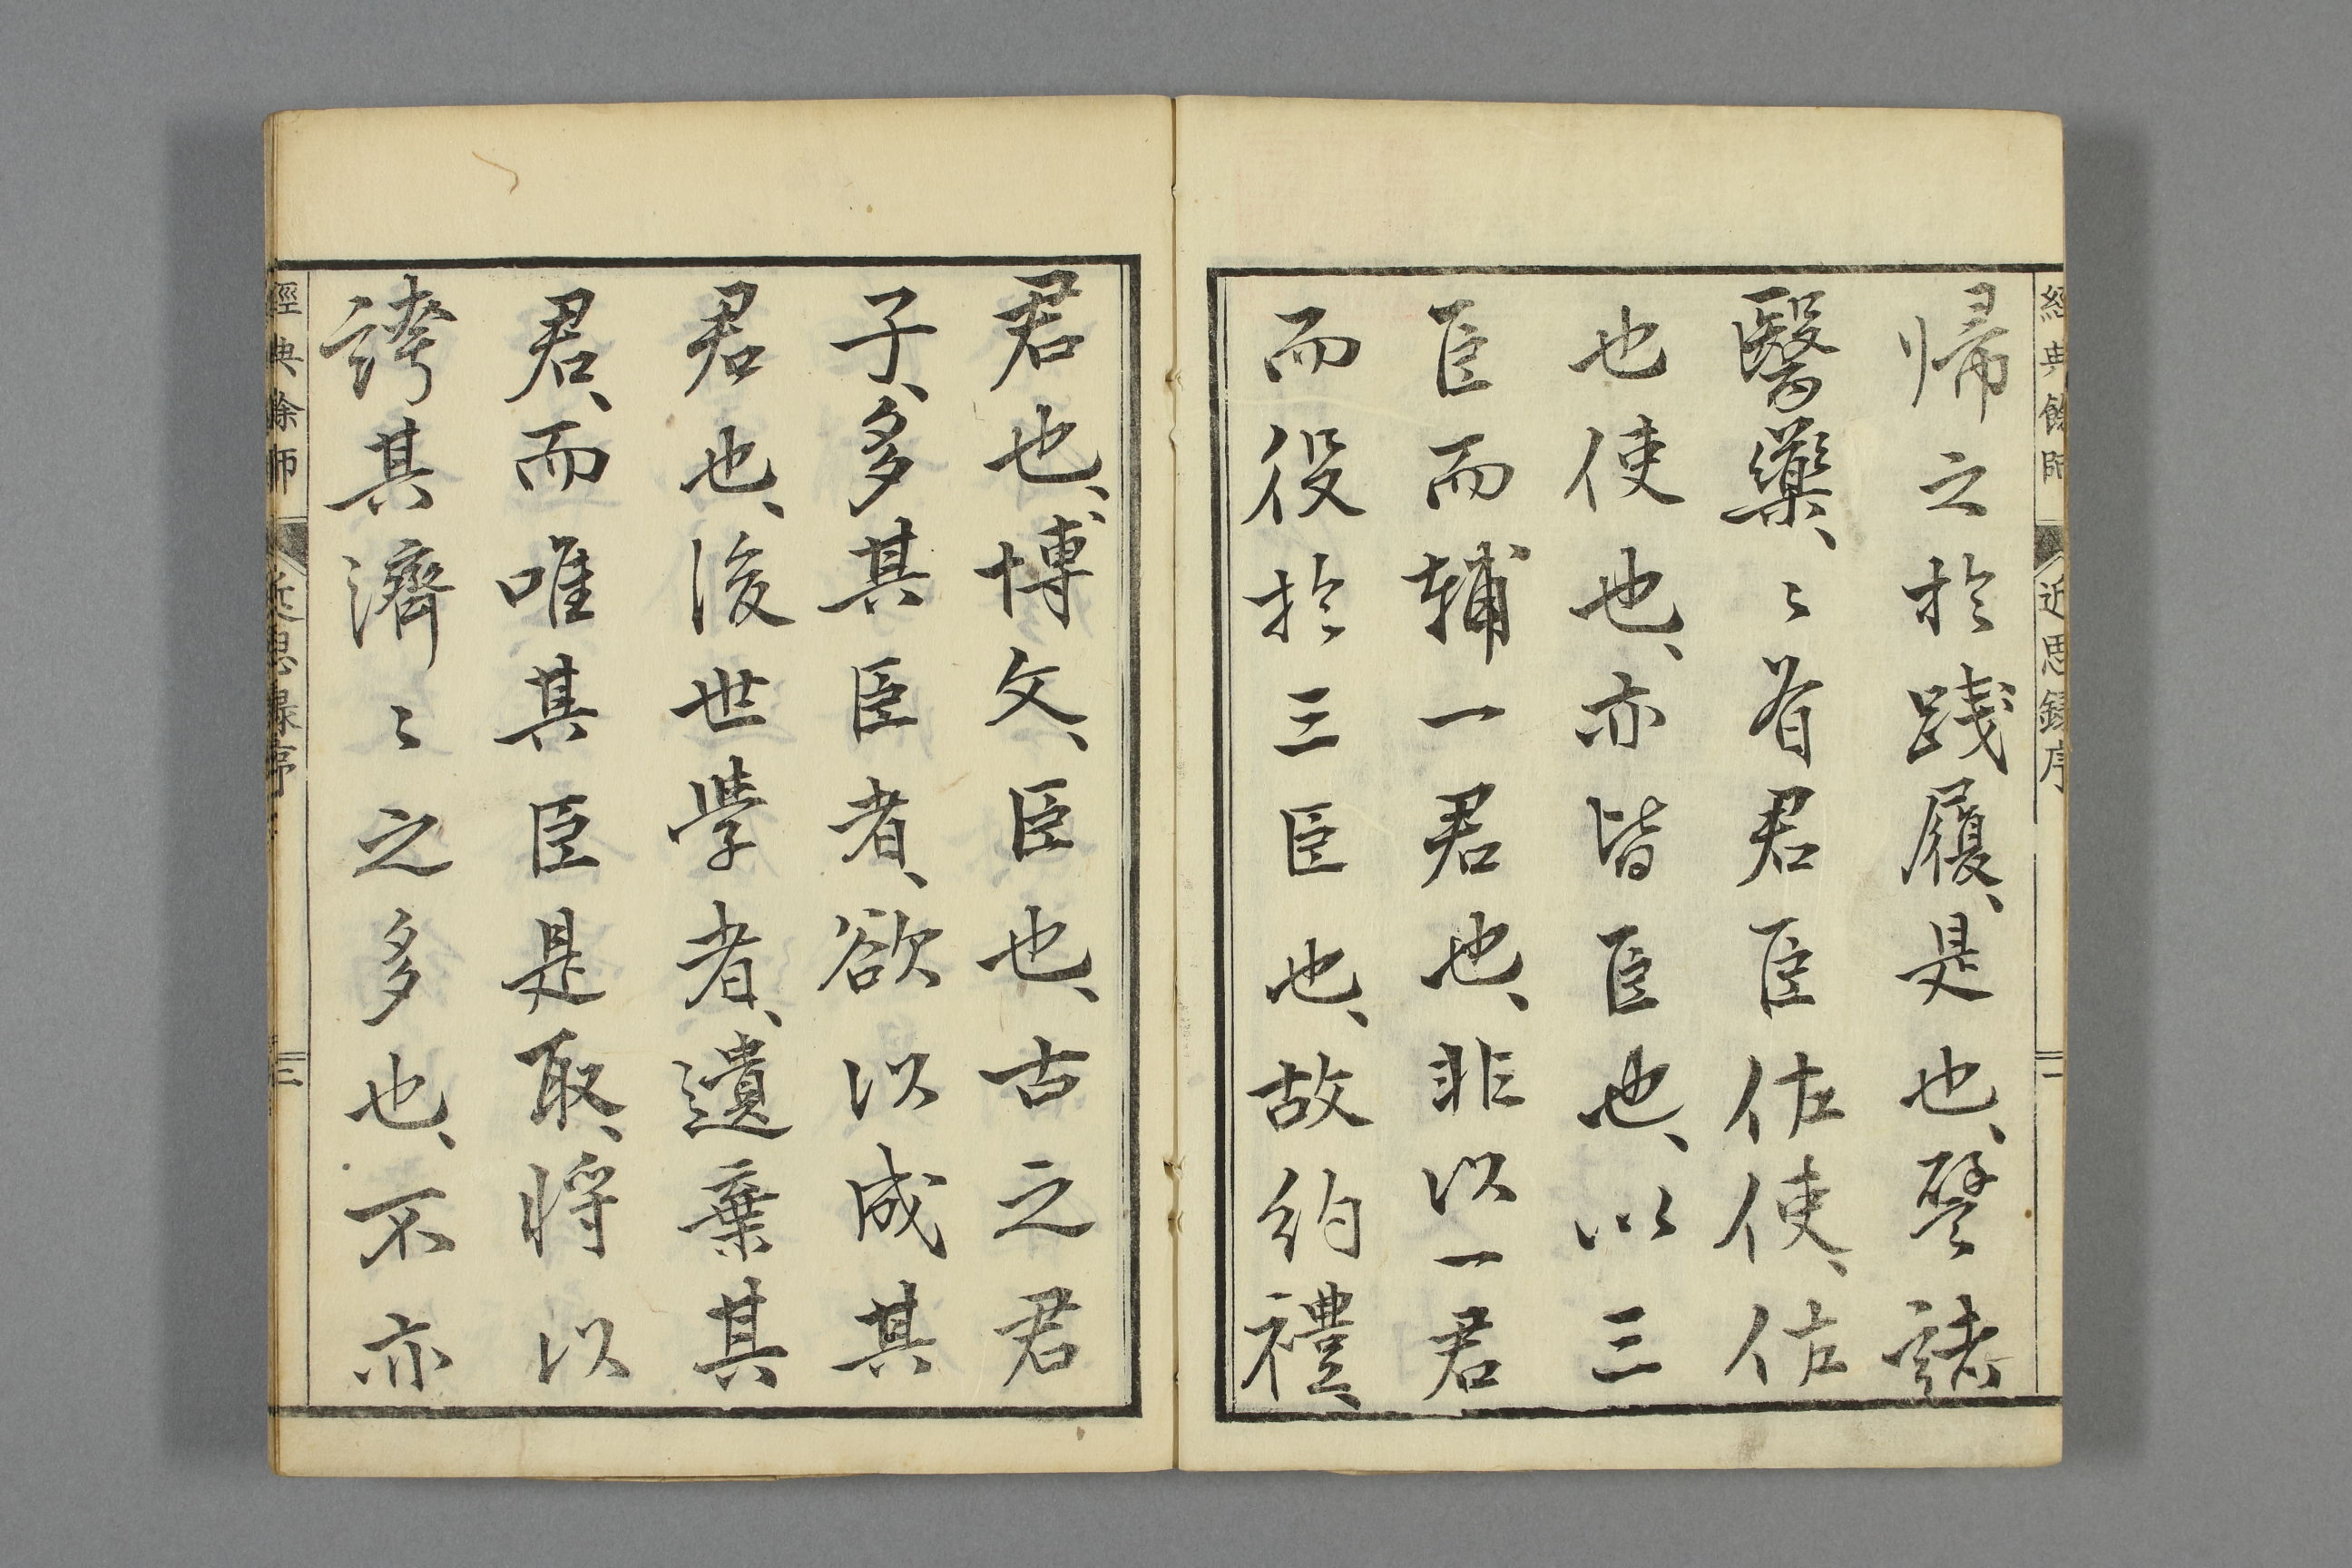 經典餘師 近思録序 二
帰之於踐履、是也、譬諸
醫藥、〻有君臣佐使、佐
也使也、亦皆臣也、以三
臣而輔一君也、非以一君
而役於三臣也、故約禮、
君也、博文、臣也、古之君
子、多其臣者、欲以成其
君也、後世學者、遺棄其
君、而唯其臣是取、將以
誇其濟〻之多也、不亦
經典餘師 近思録序 三